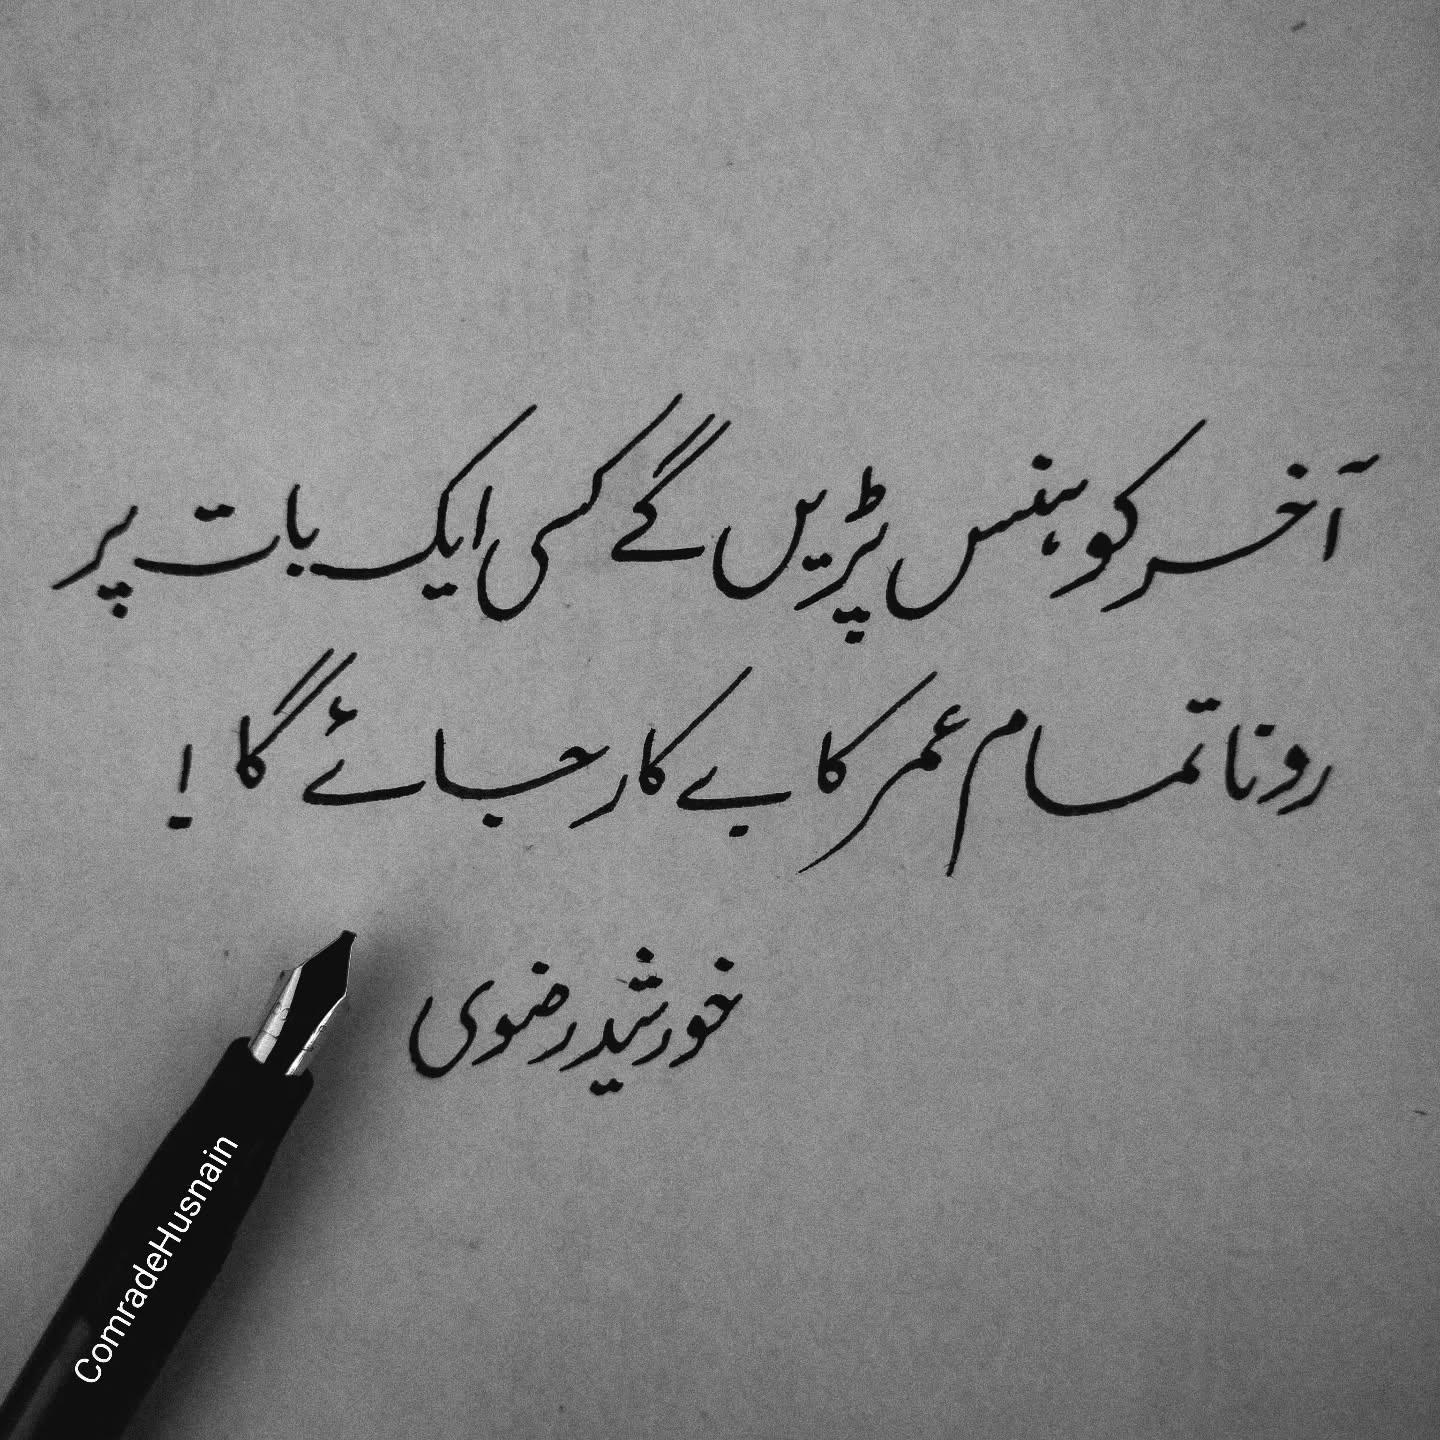 آخر کو ہنس پڑیں گے کسی ایک بات پر
رونا تمام عمر کا بے کار جائے گا !
خورشید رضوی
ComradeHusnain